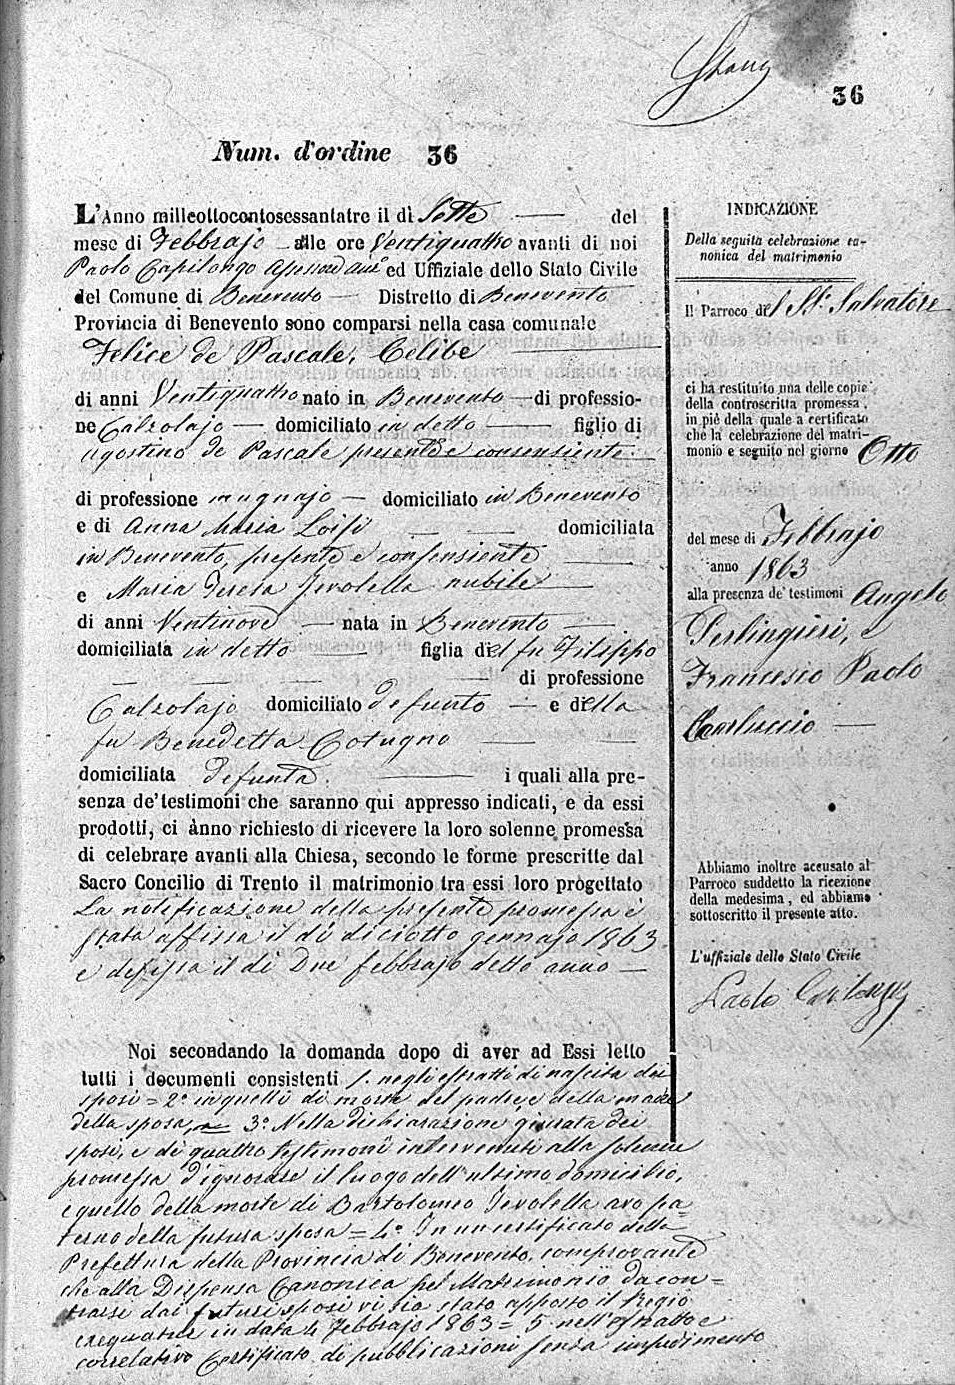 36
Num. d'ordine 36
L'Anno milleottocentosessantatre il dì Sette del
mese di Febbrajo alle ore Ventiquattro avanti di noi
Paolo Capilongo ed Uffiziale dello Stato Civile
del Comune di Benevento Distretto di Benevento
Provincia di Benevento sono comparsi nella casa comunale
Felice de Pascale, Celibe
di anni Ventiquattro nato in Benevento di professio-
ne Calzolajo domiciliato in detto figlio di
Agostino de Pascale presente e consensiente
di professione mugnajo domiciliato in Benevento
e di Anna Maria Loisi domiciliata
in Benevento, presente e consensiente
e Maria Teresa Jevolella nubile
di anni Ventinove nata in Benevento
domiciliata in detto figlia del fu Filippo
di professione
Calzolajo domiciliato defunto e della
fu Benedetta Cotugno
domiciliata defunta. i quali alla pre-
senza de' testimoni che saranno qui appresso indicati, e da essi
prodotti, ci ànno richiesto di ricevere la loro solenne promessa
di celebrare avanti alla Chiesa, secondo le forme prescritte dal
Sacro Concilio di Trento il matrimonio tra essi loro progettato
La notificazione della presente promessa è
stata affissa il dì diciotto gennajo 1863
e defissa il dì Due febbrajo detto anno
Noi secondando la domanda dopo di aver ad Essi letto
tutti i documenti consistenti 1. negli estratti di nascita dei
sposi = 2° in quelli di morte del padre e della madre
della sposa = 3° Nella dichiarazione giurata dei
sposi, e di quattro testimonii intervenuti alla solenne
promessa d'ignorare il luogo dell'ultimo domicilio,
e quello della morte di Bartolomeo Jevolella avo pa=
terno della futura sposa = 4° In un certificato della
Prefettura della Provincia di Benevento, comprovante
che alla Dispensa Canonica pel Matrimonio da con=
trarsi dai futuri sposi vi sia stato apposto il Regio
exequatur in data 4 Febbrajo 1863 = 5. nell'estratto e
correlativo Certificato di pubblicazioni senza impedimento
INDICAZIONE
Della seguita celebrazione ca-
nonica del matrimonio
Il Parroco del SS. Salvatore
ci ha restituito una delle copie
della controscritta promessa,
in piè della quale a certificato
che la celebrazione del matri-
monio e seguito nel giorno Otto
del mese di Febbrajo
anno 1863
alla presenza de' testimoni Angelo
Perlingieri, e
Francesco Paolo
Carluccio
Abbiamo inoltre accusato al
Parroco suddetto la ricezione
della medesima, ed abbiamo
sottoscritto il presente atto.
L'uffiziale dello Stato Civile
Paolo Capilongo